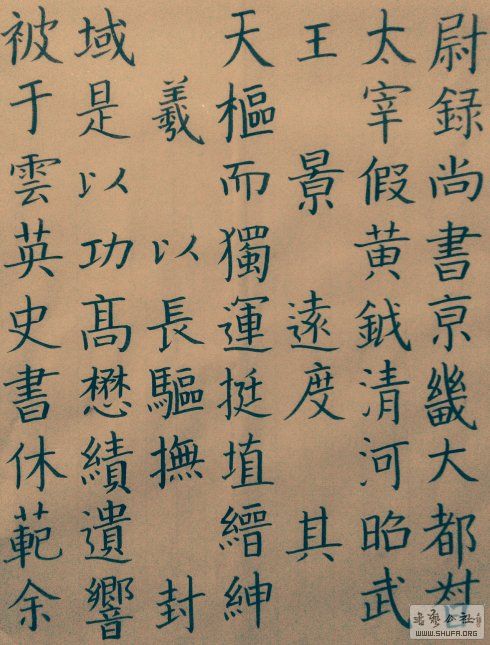 尉録尚書亰畿大都
太宰假黄鉞清河昭武
王景遠度其
天樞而獨運挺埴縉紳
羲以長驅撫封
域是以功髙懋績遺響
被于雲英史書休範余
WWW.SHUFA.ORG